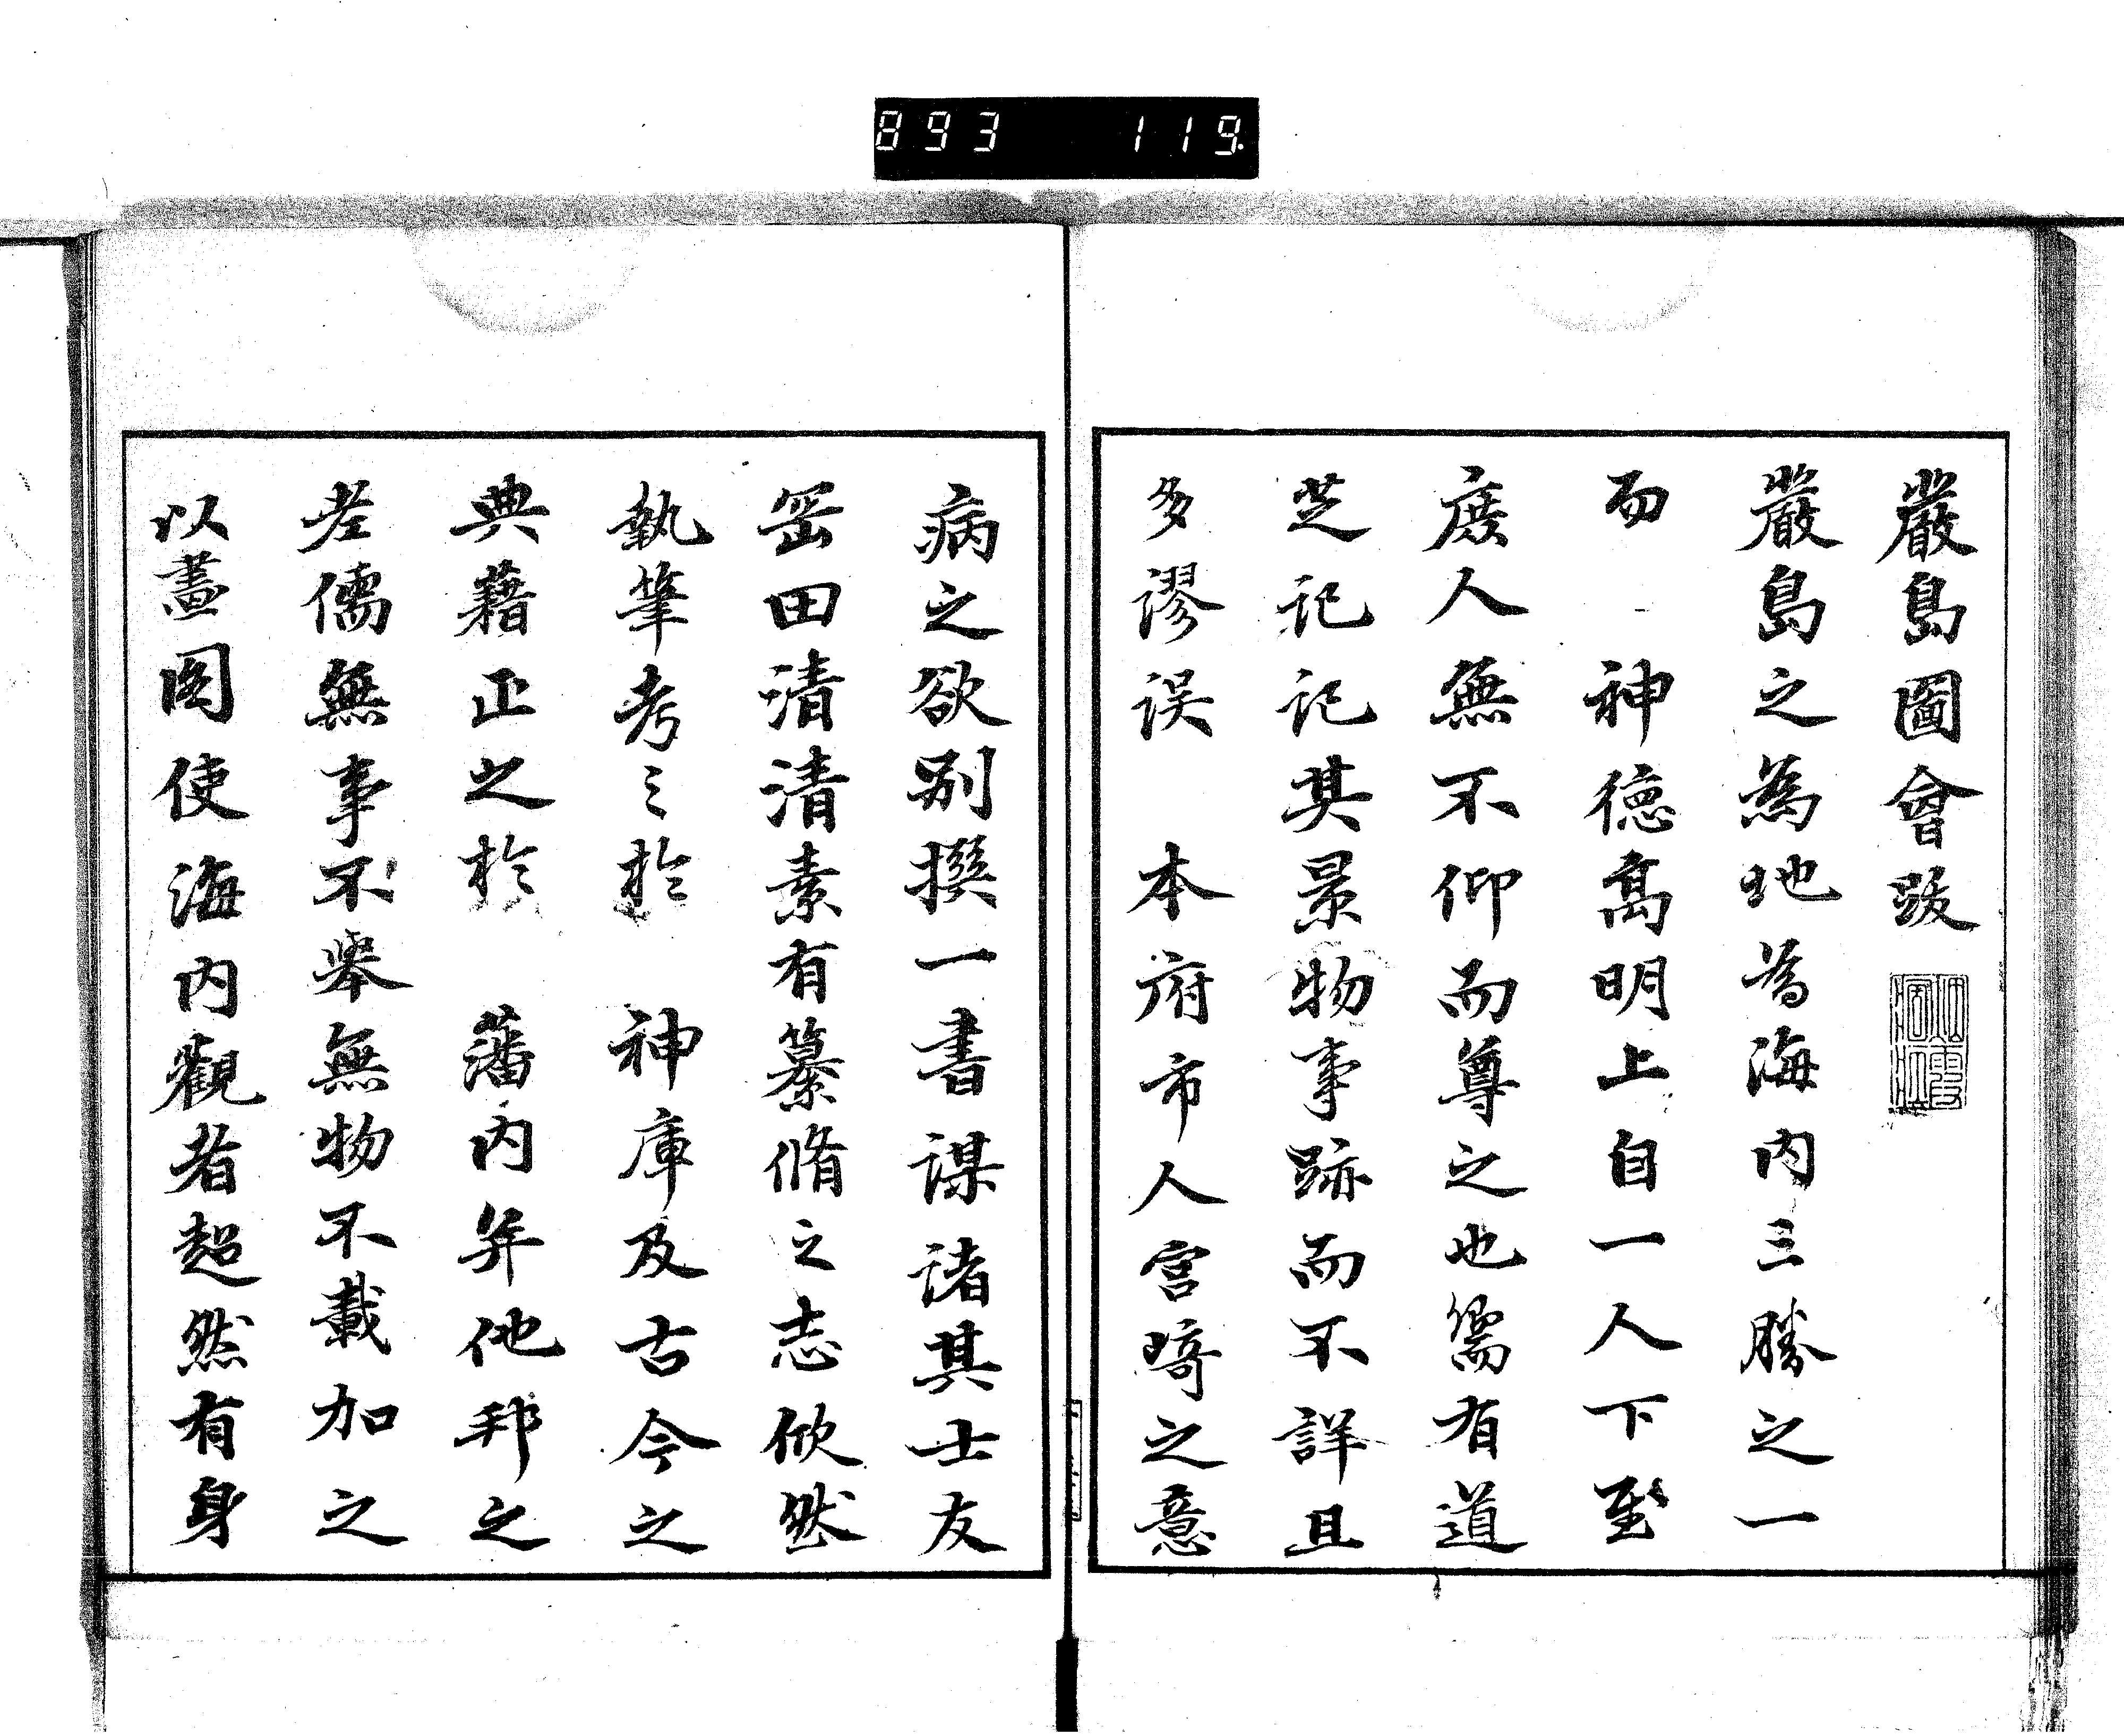 893 119
嚴島圖會跋
嚴島之為地為海内三勝之一
而 神德高明上自一人下至
庶人無不仰而尊之也舊有道
芝記記其景物事跡而不詳且
多謬误 本府市人宫﨑之意
病之欲别撰一書謀諸其士友
岡田清清素有纂脩之志欣然
執筆考之於 神庫及古今之
典藉正之於 藩内并他邦之
老儒無事不舉無物不載加之
以畫図使海内觀者超然有身